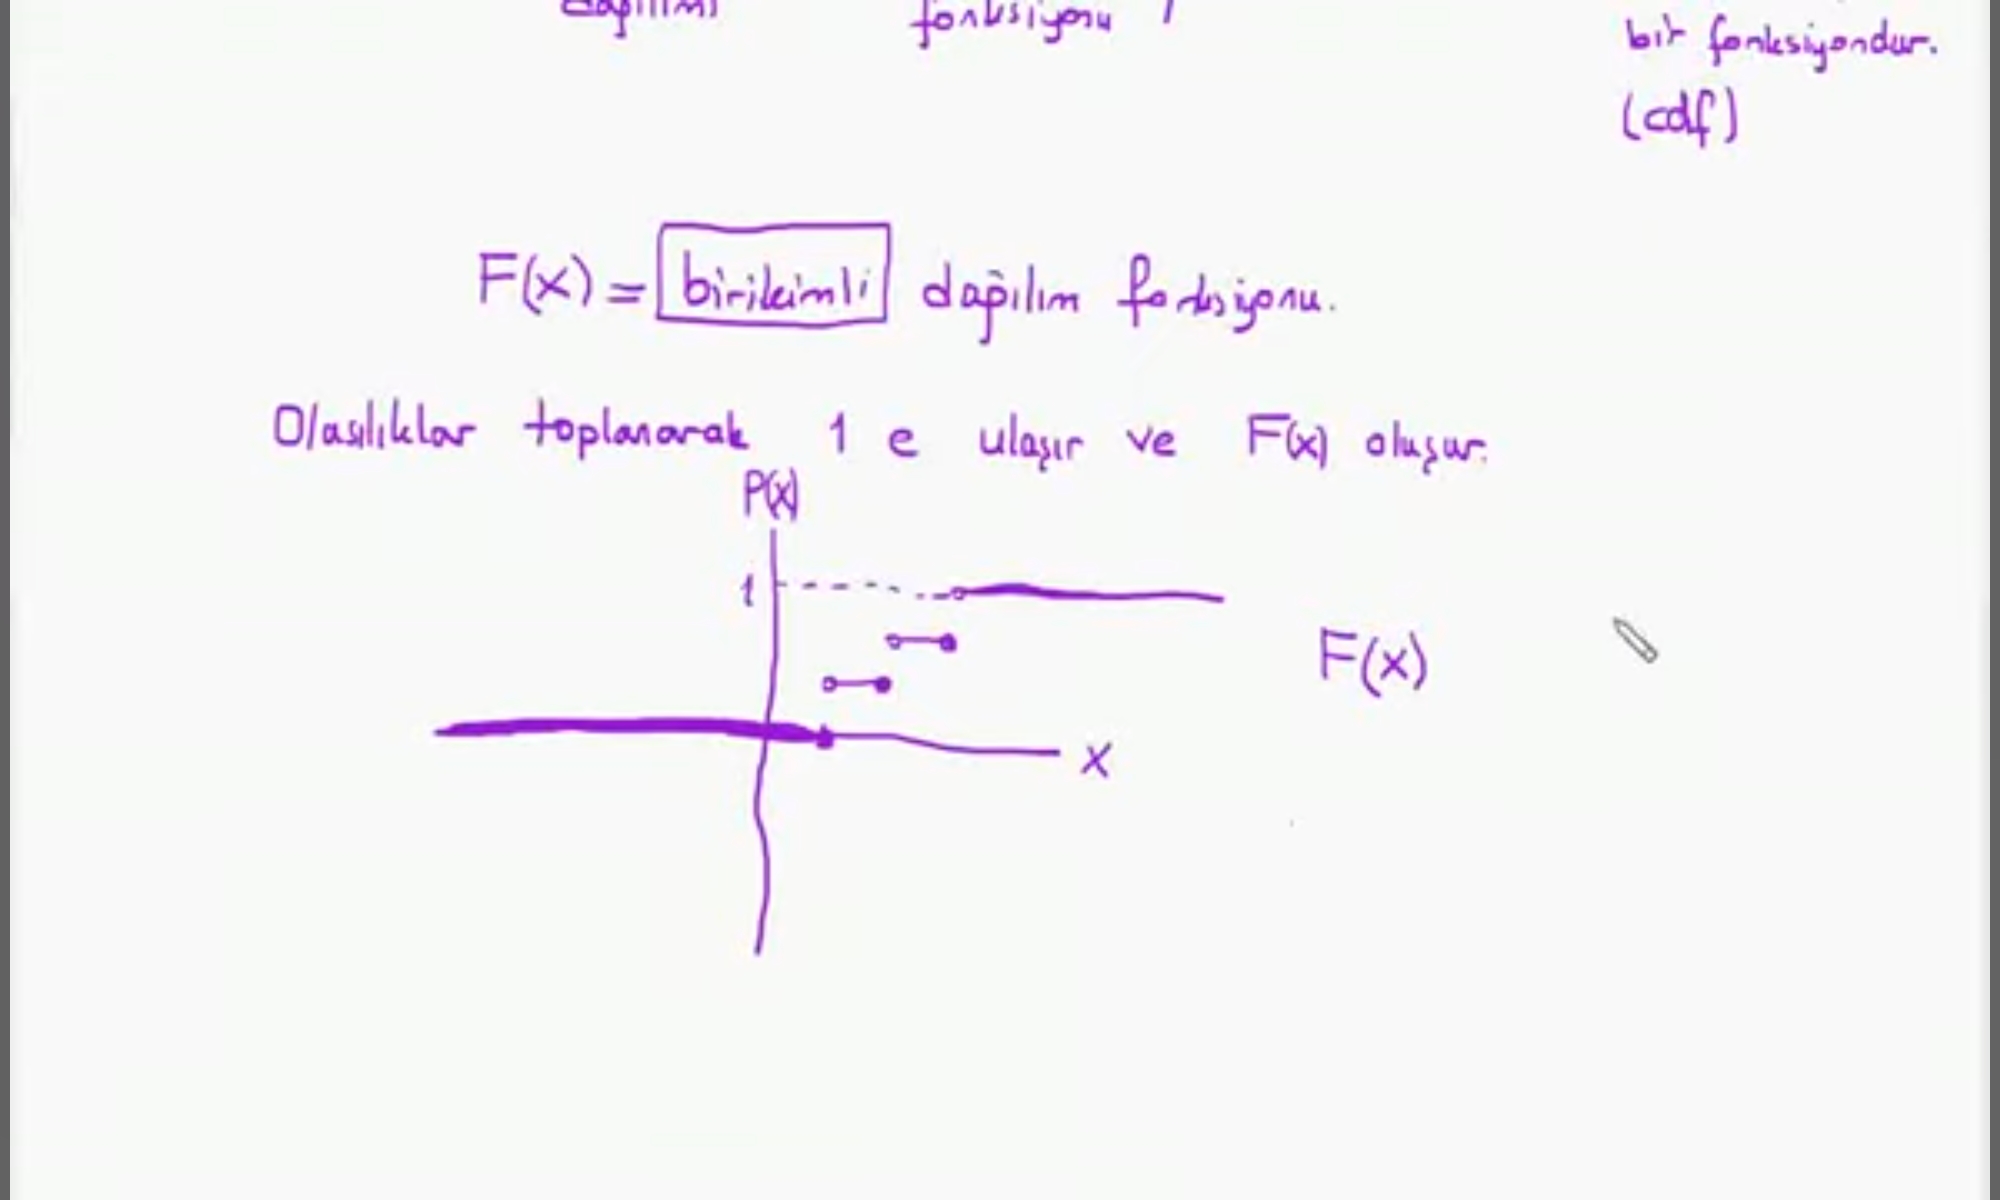 dağılımı fonksiyonu
bir fonksiyondur.
(cdf)
F(x) = birikimli dağılım fonksiyonu.
Olasılıklar toplanarak 1 e ulaşır ve F(x) oluşur.
P(x)
1
F(x)
x